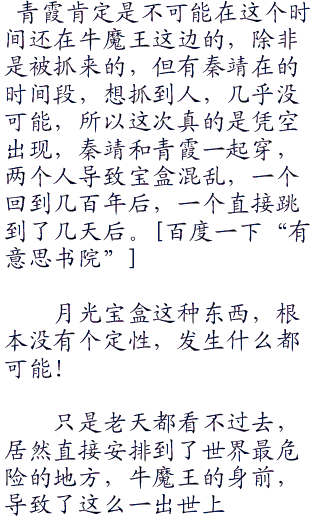 青霞肯定是不可能在这个时
间还在牛魔王这边的，除非
是被抓来的，但有秦靖在的
时间段，想抓到人，几乎没
可能，所以这次真的是凭空
出现，秦靖和青霞一起穿，
两个人导致宝盒混乱，一个
回到几百年后，一个直接跳
到了几天后。[百度一下“有
意思书院”]
月光宝盒这种东西，根
本没有个定性，发生什么都
可能！
只是老天都看不过去，
居然直接安排到了世界最危
险的地方，牛魔王的身前，
导致了这么一出世上